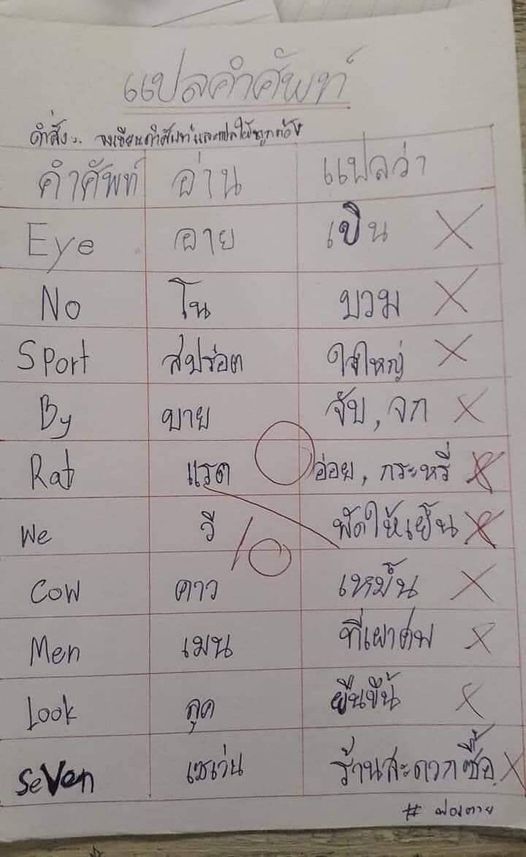 แปลคำศัพท์
คำสั่ง:. จงเขียนคำศัพท์และแปลให้ถูกต้อง
คำศัพท์ อ่าน แปลว่า
Eye อาย เขิน
No โน บวม
Sport สปร่อต ใจใหญ่
By บาย จับ, จก
Rat แรต อ่อย, กระหรี่
We วี พัดให้เย็น
0/10
Cow คาว เหม็น
Men เมน ที่เผาศพ
Look ลุค ยืนขึ้น
Seven เซเว่น ร้านสะดวกซื้อ